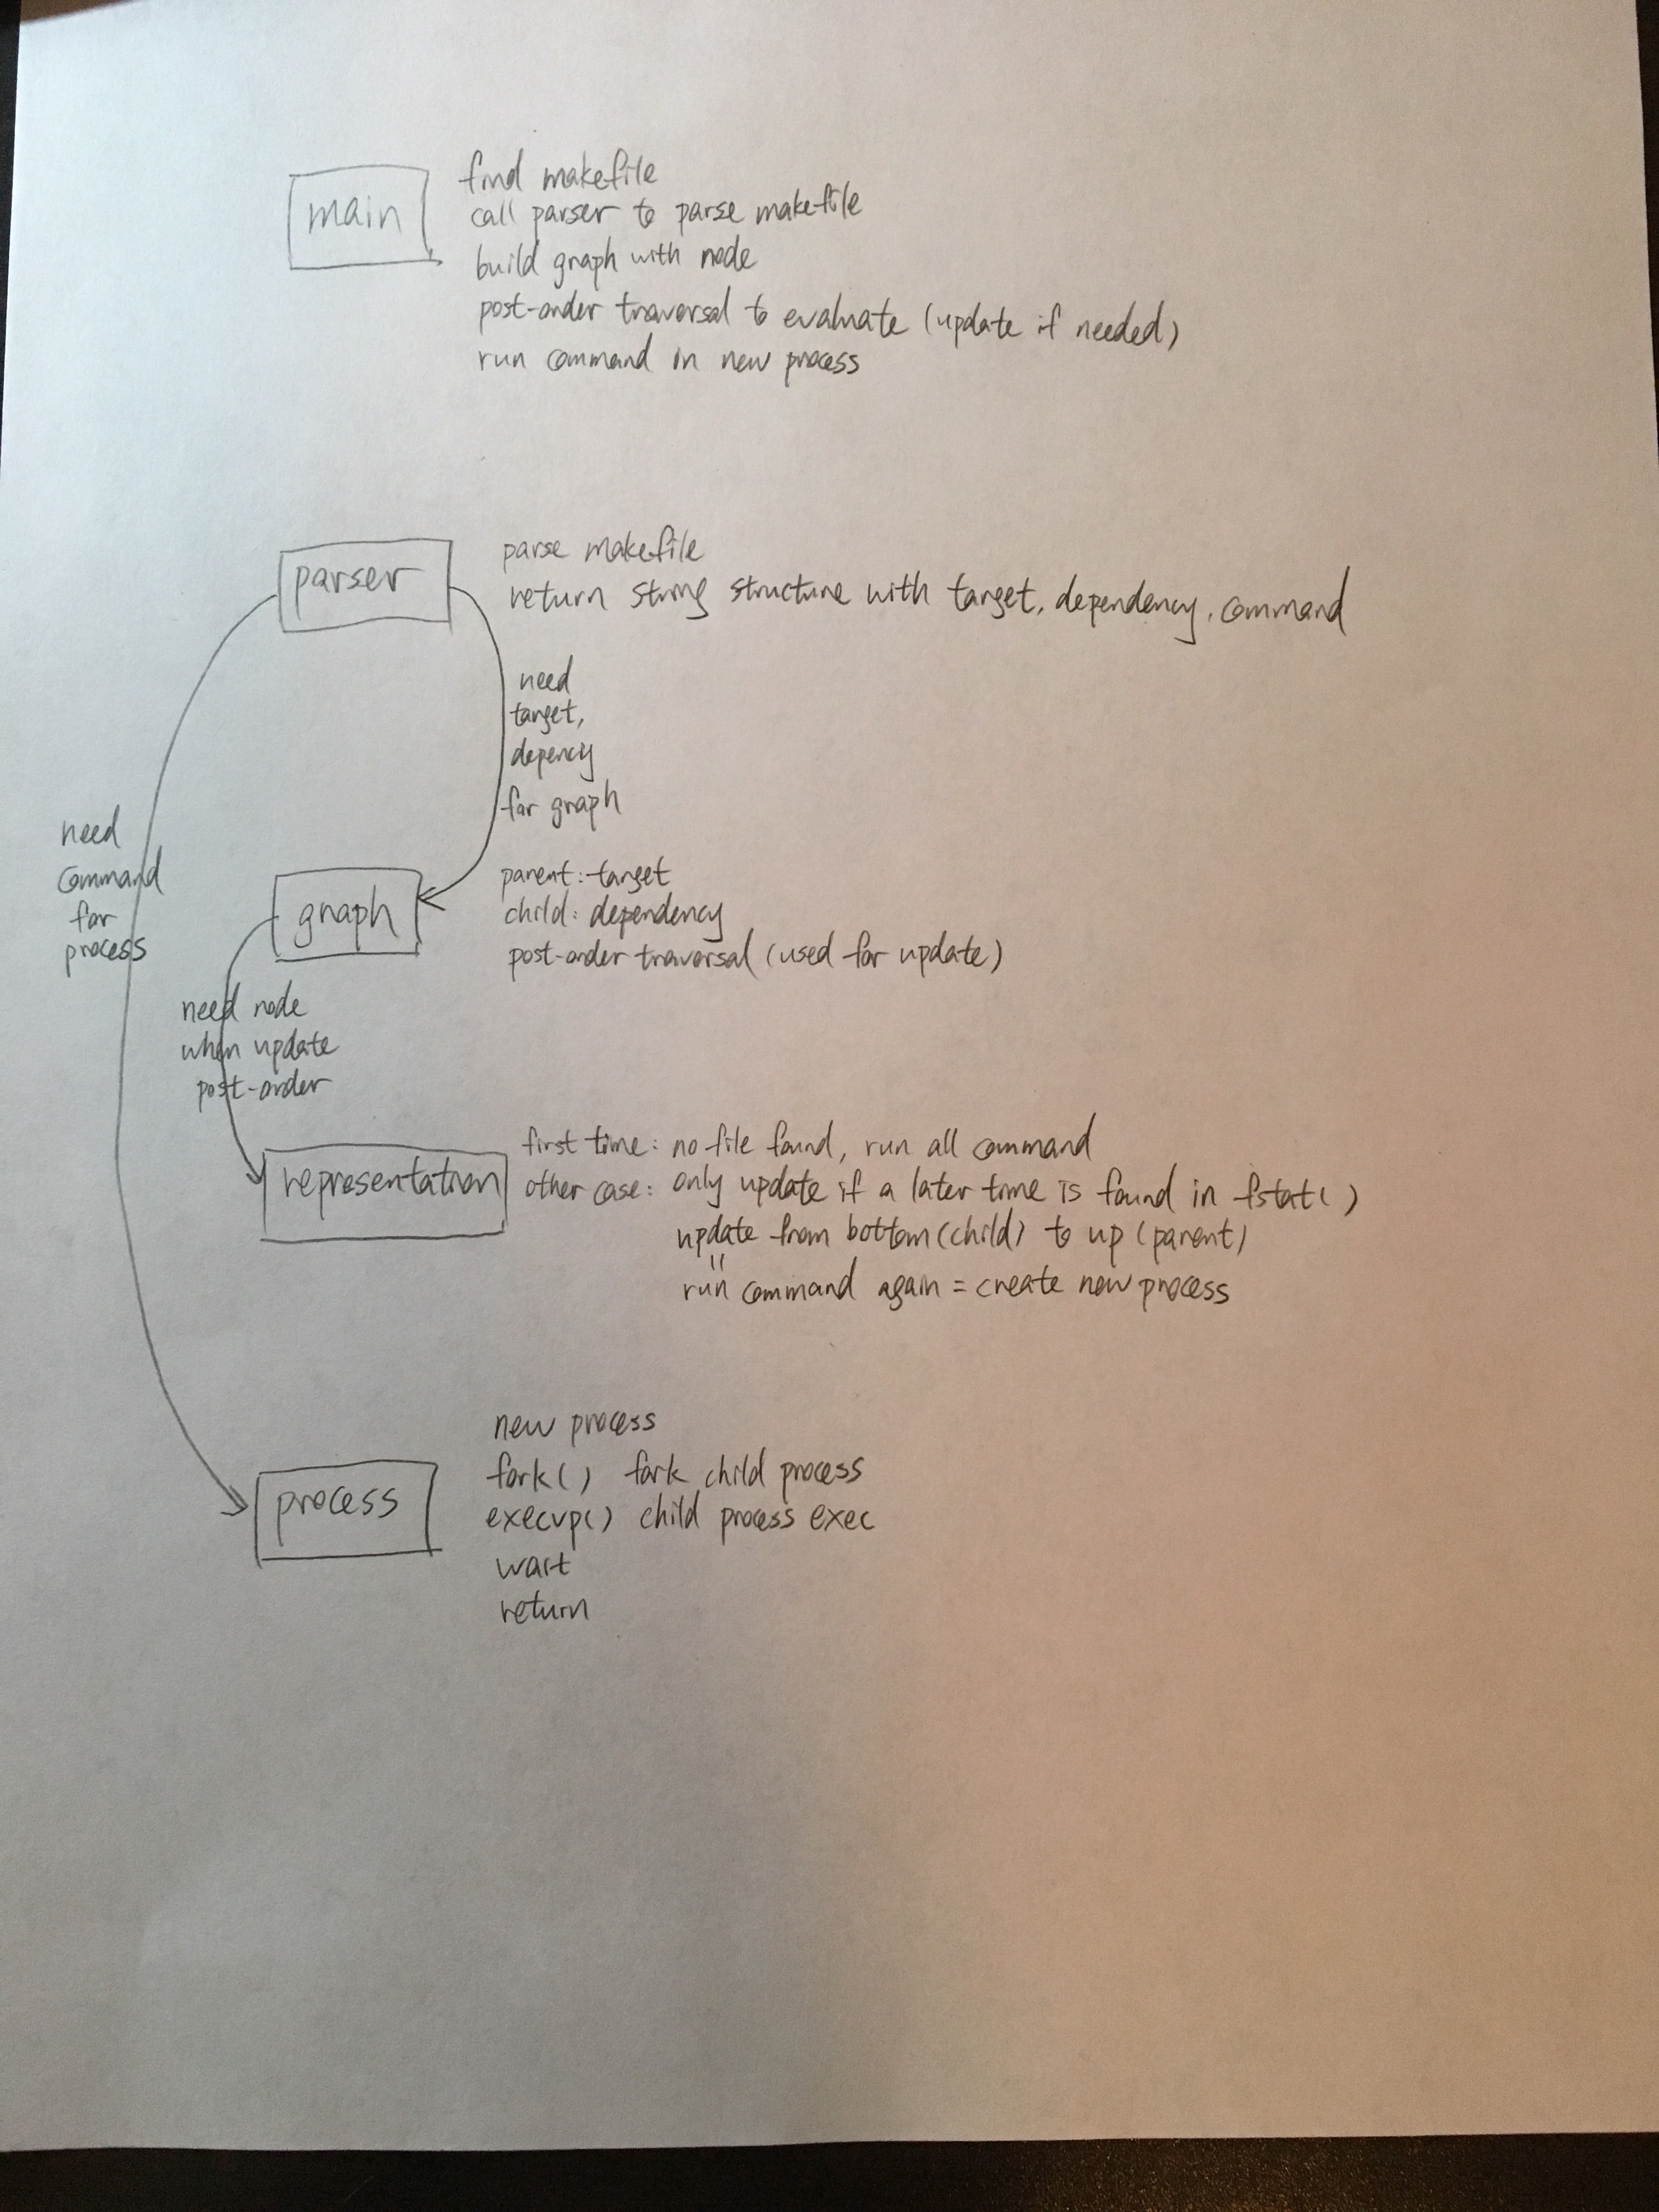 main
find makefile
call parser to parse makefile
build graph with node
post-order traversal to evaluate (update if needed)
run command in new process
parser
parse makefile
return string structure with target, dependency, command
need
target,
depency
for graph
need
command
for
process
graph
parent: target
child: dependency
post-order traversal (used for update)
need node
when update
post-order
representation
first time: no file found, run all command
other case: only update if a later time is found in fstat()
update from bottom (child) to up (parent)
"
run command again = create new process
process
new process
fork() fork child process
execvp() child process exec
wait
return